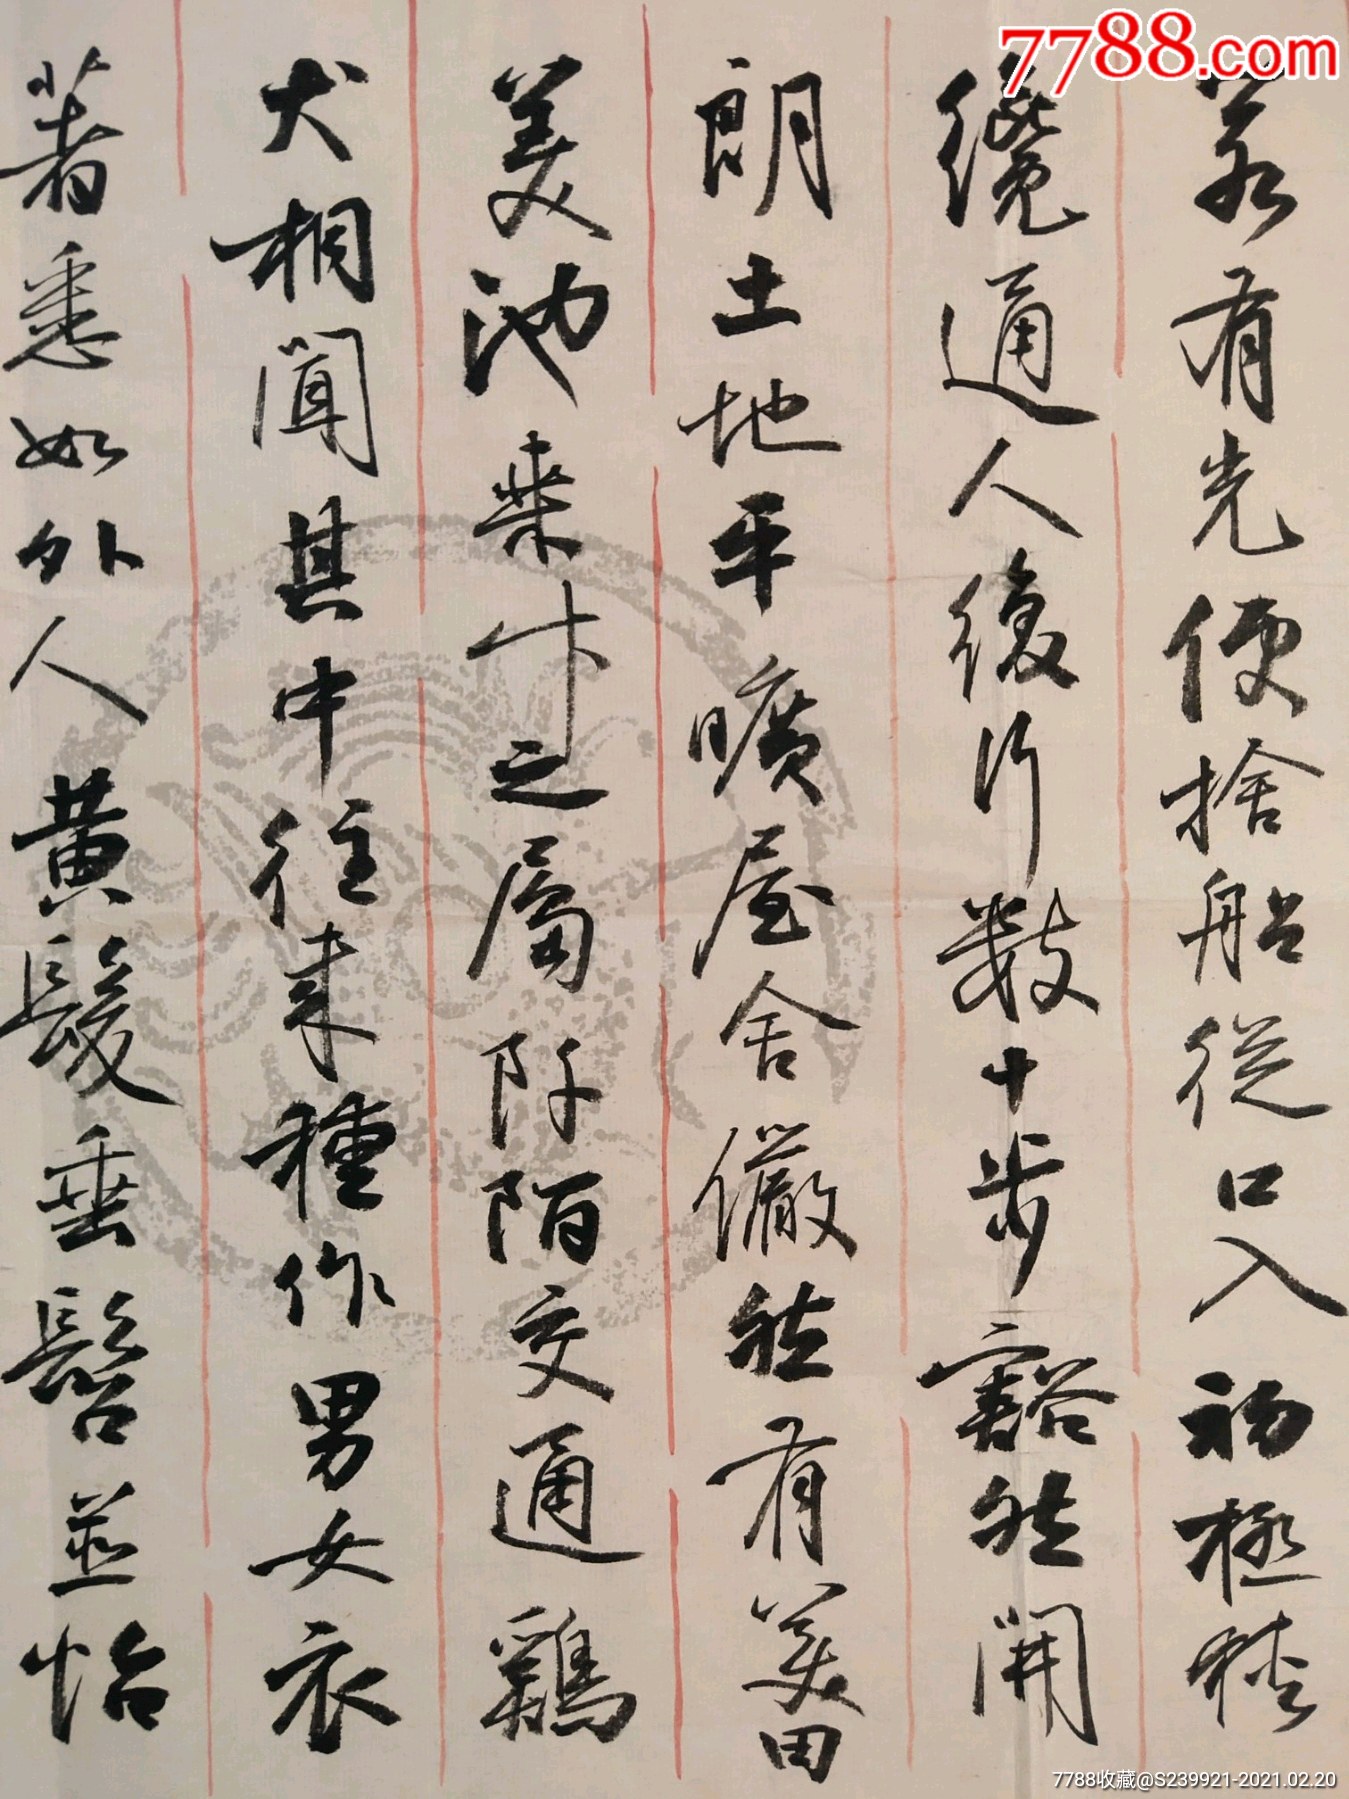 7788.com
若有光便捨船從口入初極狹
纔通人復行數十步豁然開
朗土地平曠屋舍儼然有美田
美池桑竹之屬阡陌交通鷄
犬相聞其中往来種作男女衣
著悉如外人黃髮垂髫並怡
7788收藏@S239921-2021.02.20